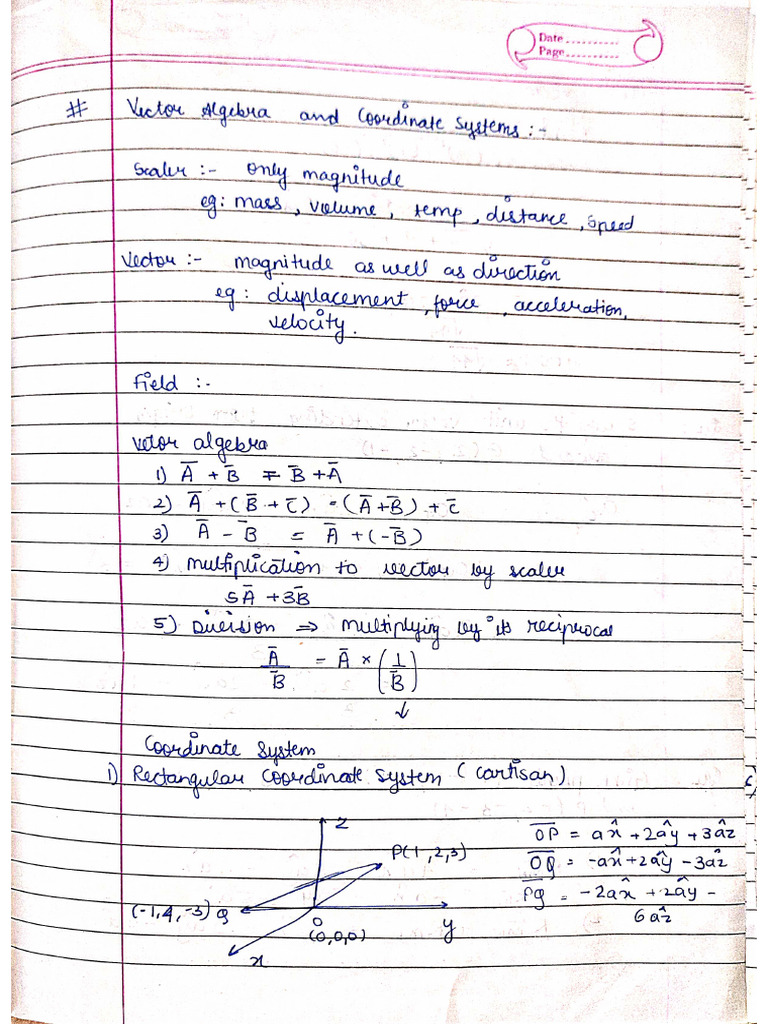 Date ..........
Page ..........
# Vector Algebra and Coordinate Systems :-
Scaler :- only magnitude
eg: mass, volume, temp, distance, speed
Vector :- magnitude as well as direction
eg: displacement, force, acceleration,
velocity.
Field :-
Vctor algebra
1) A̅ + B̅ = B̅ + A̅
2) A̅ + (B̅ + C̅) = (A̅+B̅) + C̅
3) A̅ - B̅ = A̅ + (-B̅)
4) multiplication to vector by scaler
5A̅ + 3B̅
5) Division ⇒ multiplying by its reciprocal
A̅/B̅ = A̅ × (1/B̅)
↓
Coordinate System
1) Rectangular coordinate system (cartisan)
z
P(1,2,3)
(-1,4,-3) Q
O
(0,0,0)
y
x
O̅P̅ = ax̂ + 2aŷ + 3aẑ
O̅Q̅ = -ax̂+2aŷ - 3aẑ
P̅Q̅ = -2ax̂ + 2aŷ -
6aẑ